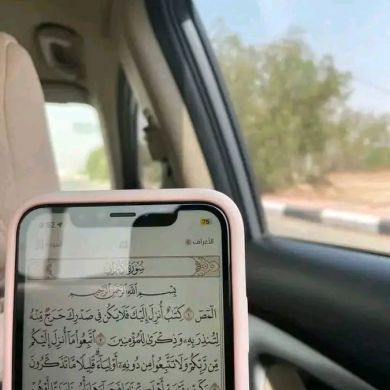 9:52
75
الأعراف
سُورَةُ الأَعْرَافِ
بِسْمِ اللَّهِ الرَّحْمَٰنِ الرَّحِيمِ
الٓمٓصٓ ١ كِتَٰبٌ أُنزِلَ إِلَيْكَ فَلَا يَكُن فِى صَدْرِكَ حَرَجٌ مِّنْهُ
لِتُنذِرَ بِهِۦ وَذِكْرَىٰ لِلْمُؤْمِنِينَ ٢ ٱتَّبِعُوا۟ مَآ أُنزِلَ إِلَيْكُم
مِّن رَّبِّكُمْ وَلَا تَتَّبِعُوا۟ مِن دُونِهِۦٓ أَوْلِيَآءَ قَلِيلًا مَّا تَذَكَّرُونَ